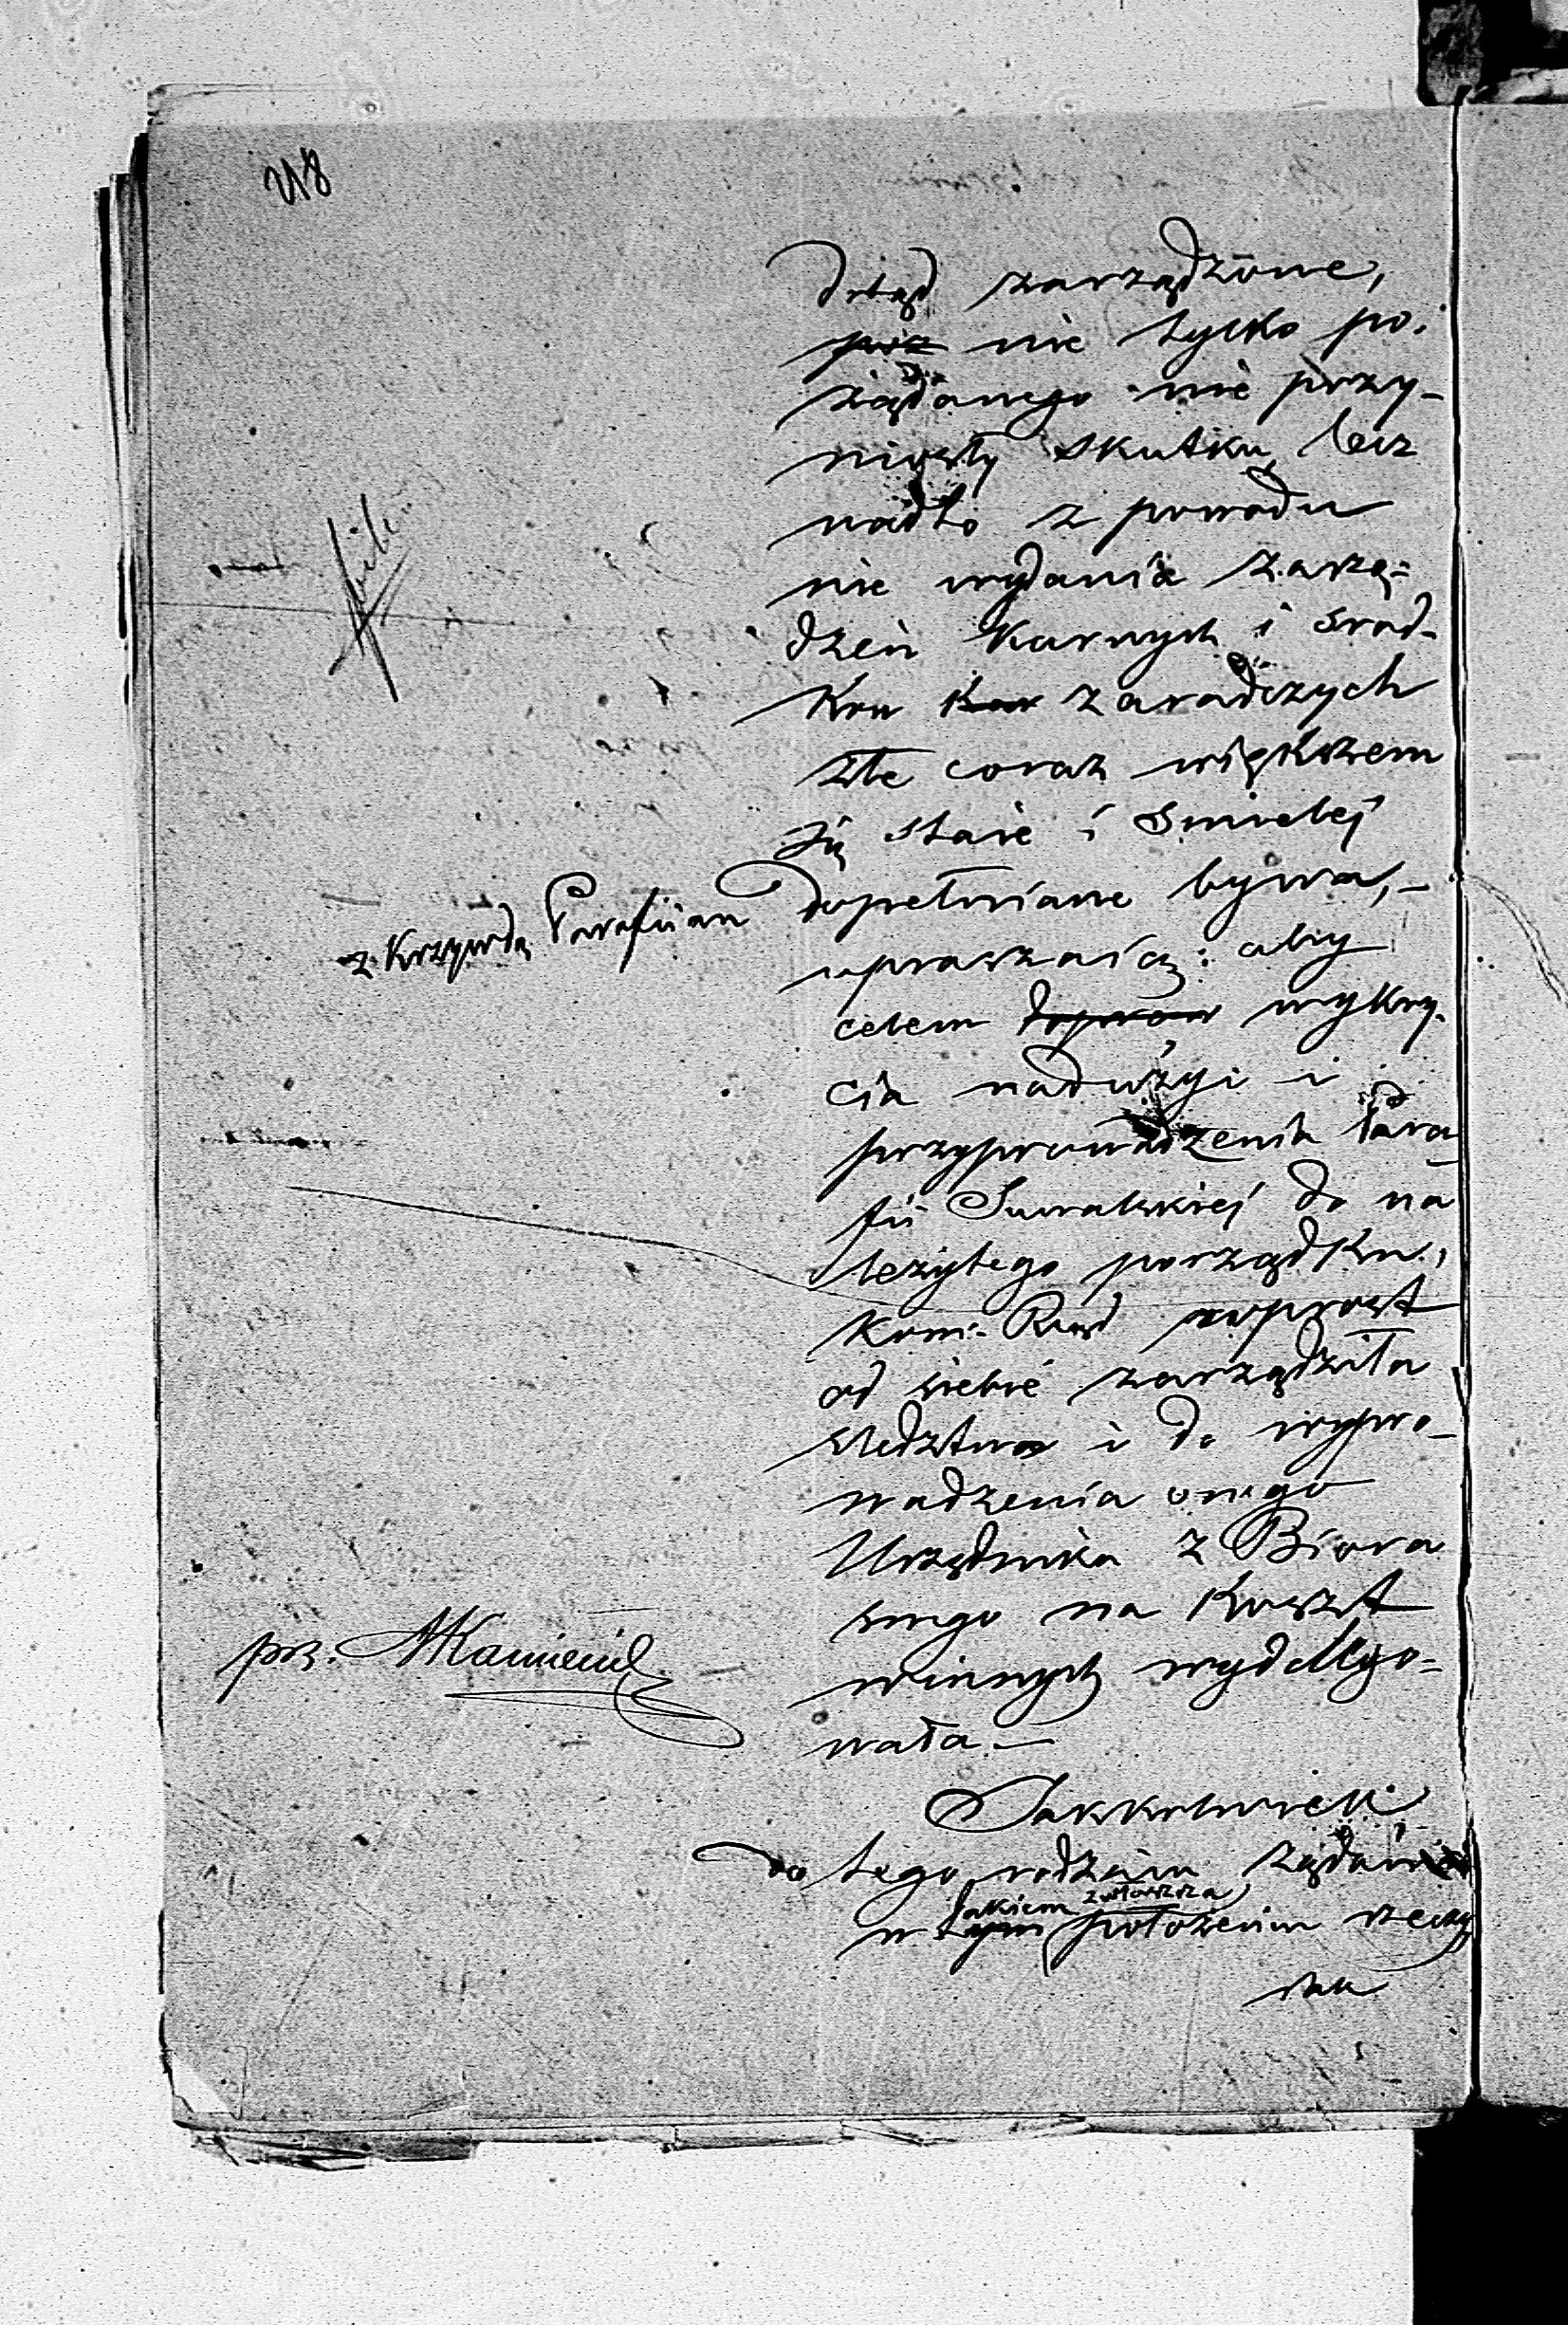 218
dotąd zarządzone,
nie tylko po-
żądanego nie przy-
niosły skutku, lecz
nadto z powodu
nie wydania zarzą-
dzeń karnych i srod-
kow kar zaradczych
złe coraz większem
się staie i smielej
z krzywdą Parafiian dopełniane bywa, —
upraszaiąc: aby
celem wykry-
cia nadużyć i
przyprowadzenia Para
fii Suwalskiej do na
leżytego porządku,
Kom. Rząd wprost
od siebie zarządziła
sledztwo i do wypro-
wadzenia onego
Urzędnika z Biora
swego na koszt
winnych wydelego-
wała —
prz.
Jakkolwiek
do tego rodzaiu żądań
w takiem zwłaszcza położeniu rzeczy